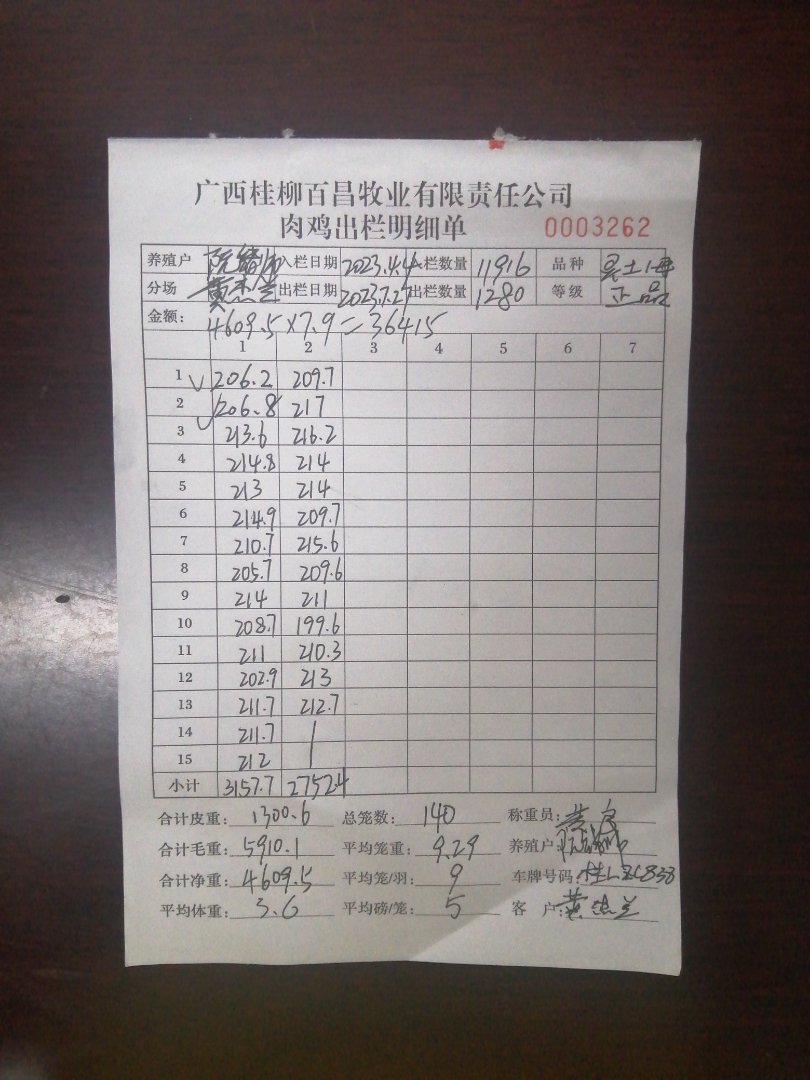 广西桂柳百昌牧业有限责任公司
肉鸡出栏明细单 0003262
养殖户 入栏日期 2023.4.4 入栏数量 11916 品种 土
分场 黄杰兰 出栏日期 2023.7.27 出栏数量 1280 等级 正品
金额: 4609.5×7.9=36415
1 2 3 4 5 6 7
1 206.2 209.7
2 206.8 217
3 213.6 216.2
4 214.8 214
5 213 214
6 214.9 209.7
7 210.7 215.6
8 205.7 209.6
9 214 211
10 208.7 199.6
11 211 210.3
12 202.9 213
13 211.7 212.7
14 211.7
15 212
小计 3157.7 2752.4
合计皮重: 1300.6 总笼数: 140 称重员: 黄
合计毛重: 5910.1 平均笼重: 9.29 养殖户:
合计净重: 4609.5 平均笼/羽: 9 车牌号码: 桂
平均体重: 3.6 平均磅/笼: 5 客户: 黄杰兰